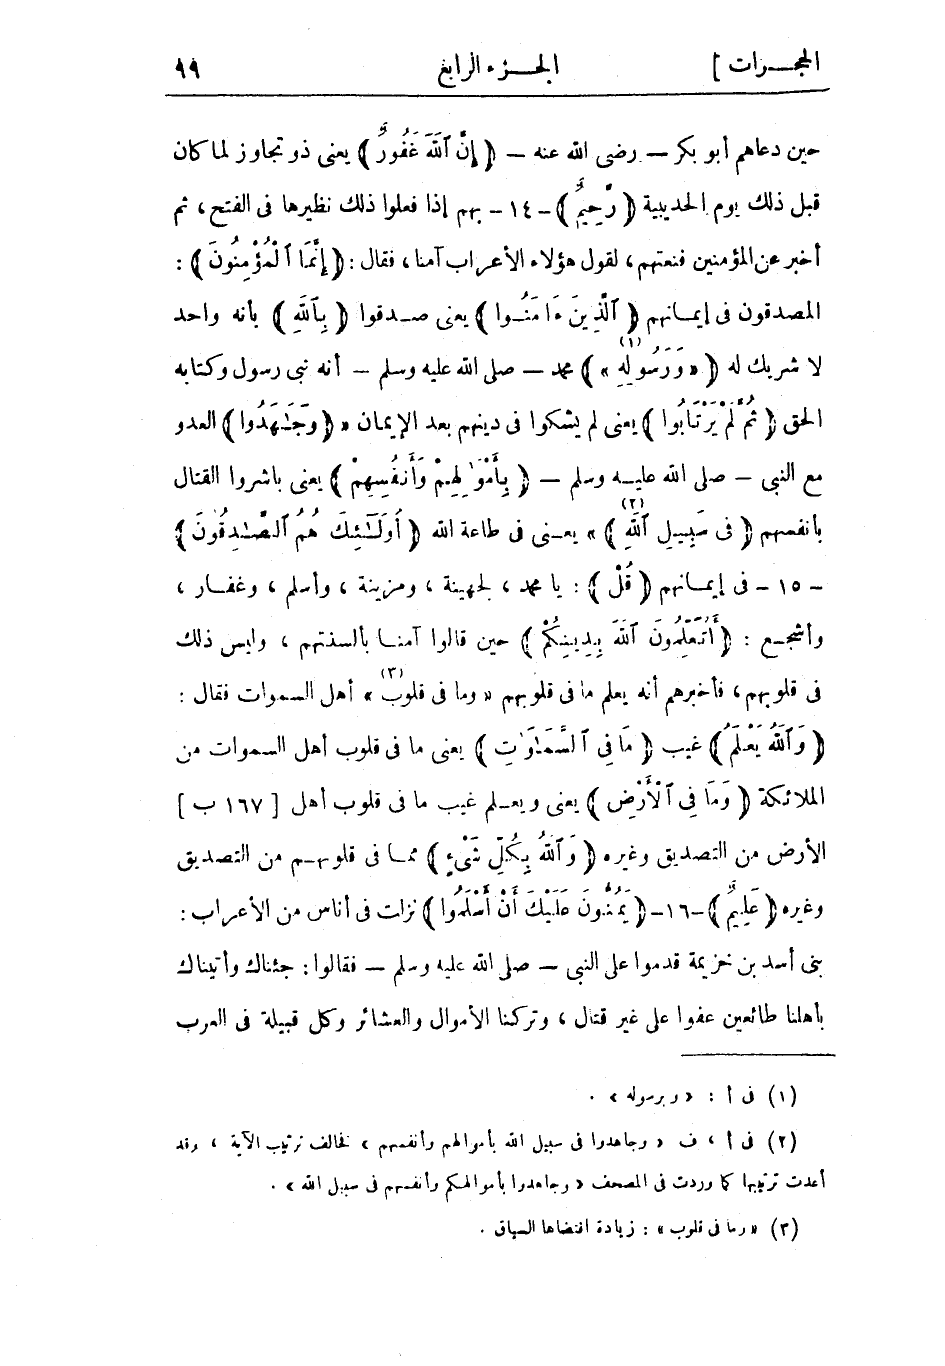 الحجرات ] الجزء الرابع ٩٩
حين دعاهم أبو بكر — رضى الله عنه — ﴿ إِنَّ ٱللَّهَ غَفُورٌ ﴾ يعنى ذو تجاوز لما كان
قبل ذلك يوم الحديبية ﴿ رَّحِيمٌ ﴾ - ١٤ - بهم إذا فعلوا ذلك نظيرها فى الفتح ، ثم
أخبر عن المؤمنين فنعتهم ، لقول هؤلاء الأعراب آمنا ، فقال : ﴿ إِنَّمَا ٱلْمُؤْمِنُونَ ﴾ :
المصدقون فى إيمانهم ﴿ ٱلَّذِينَ ءَامَنُوا ﴾ يعنى صدقوا ﴿ بِٱللَّهِ ﴾ بأنه واحد
لا شريك له ﴿ « وَرَسُولِهِ » (١) ﴾ محمد — صلى الله عليه وسلم — أنه نبى رسول وكتابه
الحق ﴿ ثُمَّ لَمْ يَرْتَابُوا ﴾ يعنى لم يشكوا فى دينهم بعد الإيمان « ﴿ وَجَـٰهَدُوا ﴾ العدو
مع النبى — صلى الله عليه وسلم — ﴿ بِأَمْوَٰلِهِمْ وَأَنفُسِهِمْ ﴾ يعنى باشروا القتال
بأنفسهم ﴿ فِى سَبِيلِ ٱللَّهِ (٢) ﴾ » يعنى فى طاعة الله ﴿ أُولَـٰٓئِكَ هُمُ ٱلصَّـٰدِقُونَ ﴾
- ١٥ - فى إيمانهم ﴿ قُلْ ﴾ : يا محمد ، لجهينة ، ومزينة ، وأسلم ، وغفار ،
وأشجع : ﴿ أَتُعَلِّمُونَ ٱللَّهَ بِدِينِكُمْ ﴾ حين قالوا آمنا بألسنتهم ، وليس ذلك
فى قلوبهم ، فأخبرهم أنه يعلم ما فى قلوبهم « وما فى قلوب (٣) » أهل السموات فقال :
﴿ وَٱللَّهُ يَعْلَمُ ﴾ غيب ﴿ مَا فِى ٱلسَّمَـٰوَٰتِ ﴾ يعنى ما فى قلوب أهل السموات من
الملائكة ﴿ وَمَا فِى ٱلْأَرْضِ ﴾ يعنى ويعلم غيب ما فى قلوب أهل [ ١٦٧ ب ]
الأرض من التصديق وغيره ﴿ وَٱللَّهُ بِكُلِّ شَىْءٍ ﴾ مما فى قلوبهم من التصديق
وغيره ﴿ عَلِيمٌ ﴾ - ١٦ - ﴿ يَمُنُّونَ عَلَيْكَ أَنْ أَسْلَمُوا ﴾ نزلت فى أناس من الأعراب :
بنى أسد بن خزيمة قدموا على النبى — صلى الله عليه وسلم — فقالوا : جئناك وأتيناك
بأهلنا طائعين عفوا على غير قتال ، وتركنا الأموال والعشائر وكل قبيلة فى العرب
(١) فى أ : « وبرسوله » .
(٢) فى أ ، ف « وجاهدوا فى سبيل الله بأموالهم وأنفسهم » فخالف ترتيب الآية ، وقد
أعدت ترتيبها كما وردت فى المصحف « وجاهدوا بأموالكم وأنفسهم فى سبيل الله » .
(٣) « وما فى قلوب » : زيادة اقتضاها السياق .